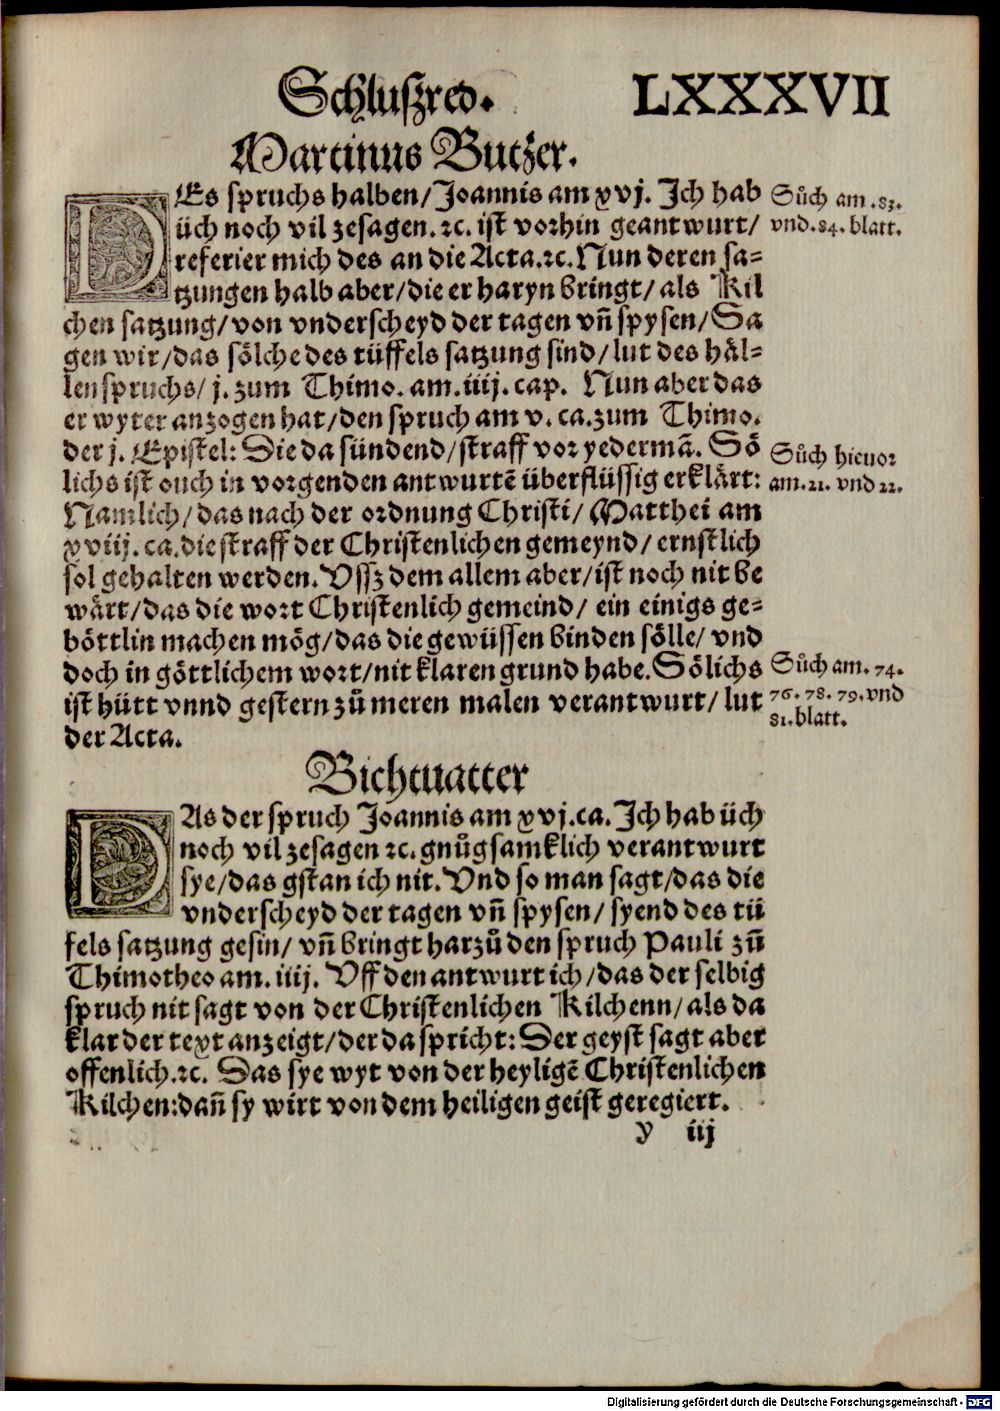 Schluszred. LXXXVII
Martinus Butzer.
DEs spruchs halben/Joannis am xvj. Ich hab
üch noch vil zesagen. ꝛc. ist vorhin geantwurt/
referier mich des an die Acta.ꝛc. Nun deren sa=
tzungen halb aber/die er haryn bringt/ als Kil
chen satzung/von vnderscheyd der tagen vñ spysen/Sa
gen wir/das sölche des tüffels satzung sind/lut des häl=
len spruchs/ j. zum Thimo. am.iiij. cap. Nun aber das
er wyter anzogen hat/den spruch am v. ca.zum Thimo.
der j. Epistel: Die da sündend/straff vor yedermā. Sö
lichs ist ouch in vorgenden antwurtē überflüssig erklärt:
Namlich/das nach der ordnung Christi/Matthei am
xviij. ca.die straff der Christenlichen gemeynd/ernstlich
sol gehalten werden. Vssz dem allem aber/ist noch nit be
wärt/das die wort Christenlich gemeind/ ein einigs ge=
böttlin machen mög/das die gewüssen binden sölle/ vnd
doch in göttlichem wort/nit klaren grund habe. Sölichs
ist hütt vnnd gestern zů meren malen verantwurt/ lut
der Acta.
Sůch am .83.
vnd.84.blatt.
Sůch hieuor
am.21. vnd 22.
Sůch am. 74.
76. 78. 79.vnd
81.blatt.
Bichtuatter
DAs der spruch Joannis am xvj.ca. Ich hab üch
noch vil zesagen ꝛc. gnůgsamklich verantwurt
sye/das gstan ich nit. Vnd so man sagt/das die
vnderscheyd der tagen vñ spysen/ syend des tü
fels satzung gesin/ vñ bringt harzů den spruch Pauli zů
Thimotheo am. iiij. Vff den antwurt ich/das der selbig
spruch nit sagt von der Christenlichen Kilchenn/als da
klar der text anzeigt/der da spricht: Der geyst sagt aber
offenlich.ꝛc. Das sye wyt von der heyligē Christenlichen
Kilchen:dañ sy wirt von dem heiligen geist geregiert.
y iij
Digitalisierung gefördert durch die Deutsche Forschungsgemeinschaft - DFG